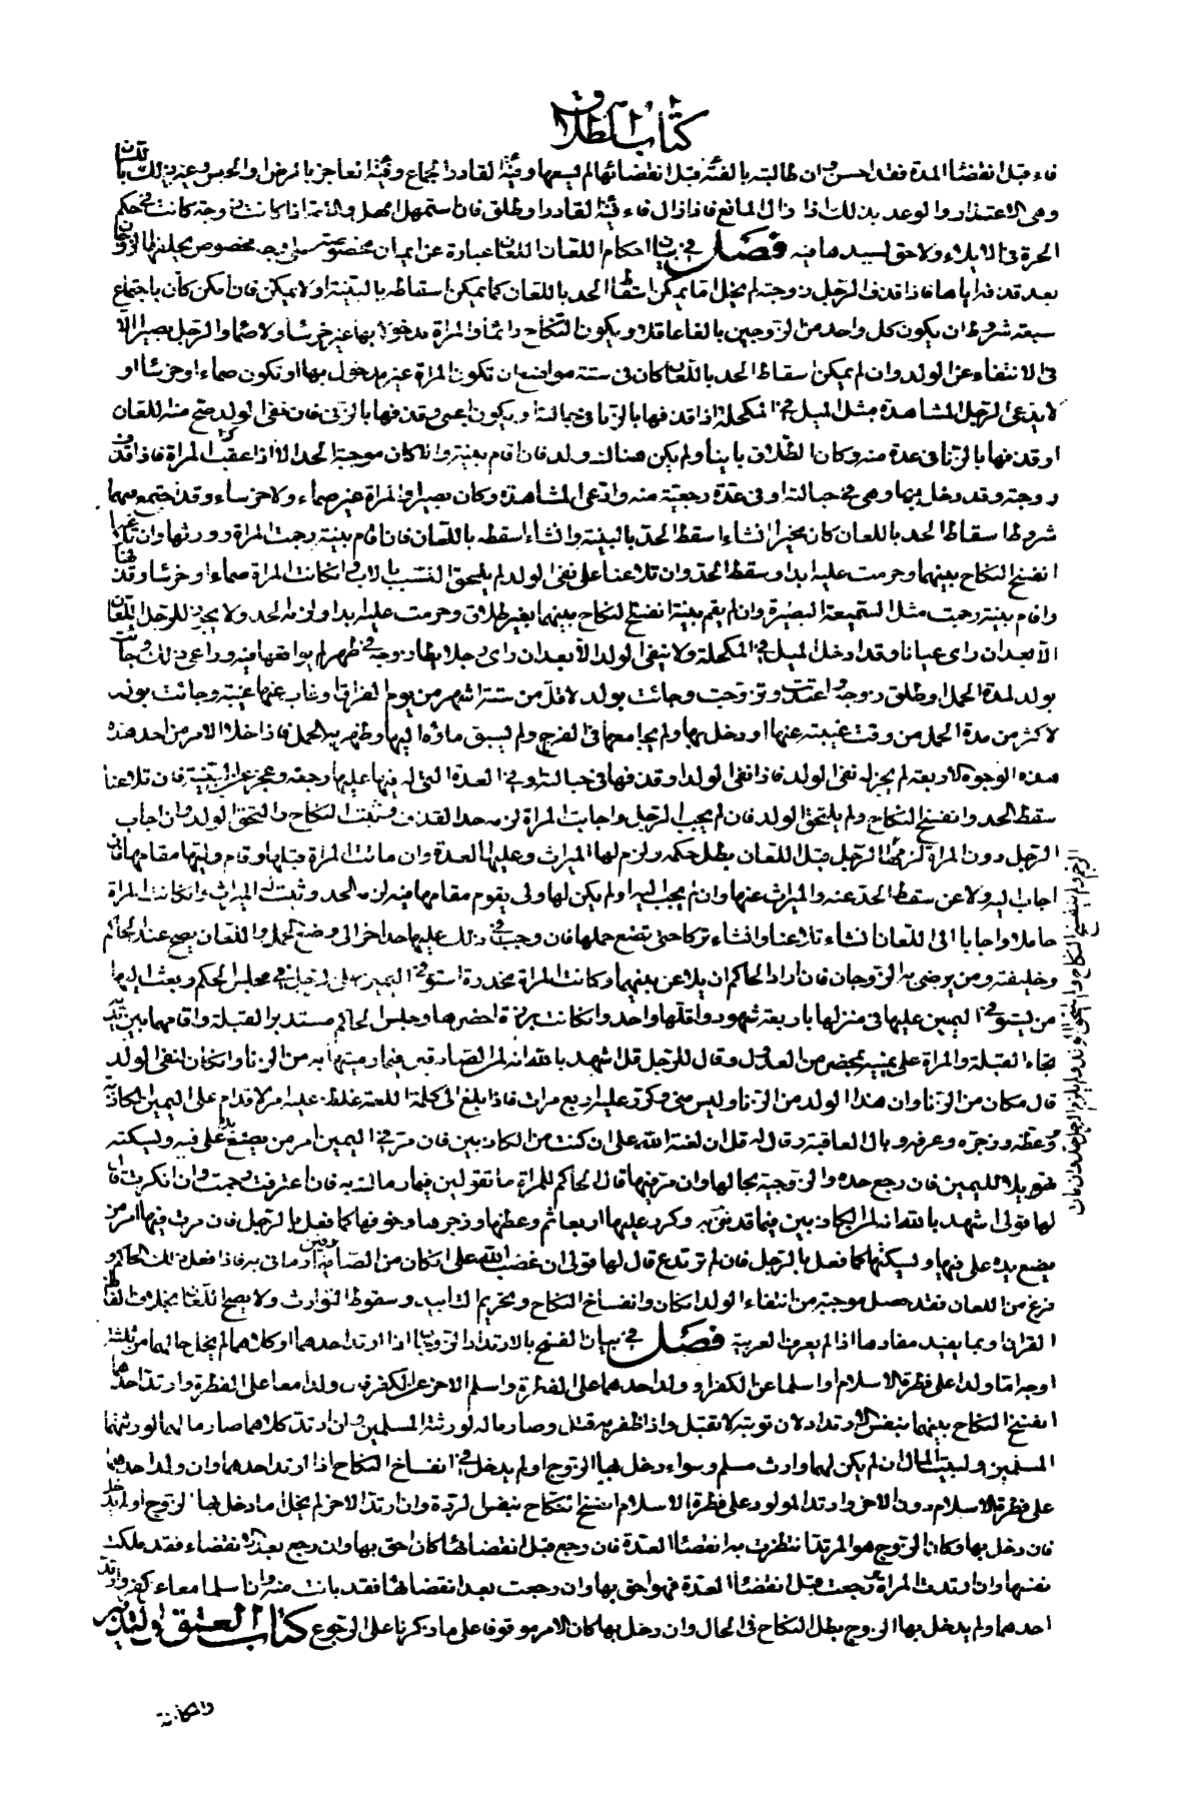 كتاب الطلاق
فاء قبل انقضاء المدة فقد احسن وان طالبته بالفئة قبل انقضائها لم يسعها وفئة القادر الجماع وفئة العاجز بالمرض والحبس وغير ذلك باللسان
وهي الاعتذار والوعد بذلك اذا زال المانع فاذا زال فاء فئة القادر او طلق فان استمهل امهل والامة اذا كانت زوجة كانت في حكم
الحرة في الايلاء ولا حق لسيدها فيه فصل في بيان احكام اللعان اللعان عبارة عن ايمان مخصوصة على وجه مخصوص يحلفها الزوجان
بعد قذف اياها فاذا قذف الرجل زوجته لم يخل اما يمكن اسقاط الحد باللعان كما يمكن اسقاطه بالبينة او لا يمكن فان امكن كان باجتماع
سبعة شروط ان يكون كل واحد من الزوجين بالغا عاقلا ويكون النكاح دائما والمراة مدخولا بها غير خرساء ولا صماء والرجل بصيرا الا
في الانتفاء عن الولد وان لم يمكن اسقاط الحد باللعان كان في ستة مواضع ان تكون المراة غير مدخول بها او تكون صماء او خرساء او
لا يدعي الرجل المشاهدة مثل الميل في المكحلة اذا قذفها بالزنا في حبالته او يكون اعمى وقذفها بالزنى فان نفى الولد صح منه اللعان
او قذفها بالزنا في عدة منه وكان الطلاق باينا ولم يكن هناك ولد فان اقام بينة والا كان موجبة الحد الا اذا عفت المراة فاذا قذف
زوجته وقد دخل بها وهي في حبالته او في عدة رجعية منه وادعى المشاهدة وكان بصيرا والمراة غير صماء ولا خرساء وقد اجتمع فيهما
شروط اسقاط الحد باللعان كان مخيرا ان شاء اسقط الحد بالبينة وان شاء اسقطه باللعان فان اقام بينة رجمت المراة وورثها وان تلاعنا
انفسخ النكاح بينهما وحرمت عليه ابدا وسقط الحد وان تلاعنا على نفي الولد لم يلحق النسب بالاب وان كانت المراة صماء او خرساء وقذفها
واقام بينة رجمت مثل السميعة البصيرة وان لم يقم بينة انفسخ النكاح بينهما بغير طلاق وحرمت عليه ابدا ولزمه الحد ولا يجوز للرجل اللعان
الا بعد ان راى عيانا وقد ادخل الميل في المكحلة ولا ينفي الولد الا بعد ان راى رجلا يطا زوجته في طهر لم يواقعها فيه وراعى ذلك وجاءت
بولد لمدة الحمل او طلق زوجة واعتدت وتزوجت وجائت بولد لاقل من ستة اشهر من يوم الفراق او غاب عنها غيبة وجائت بولد
لاكثر من مدة الحمل من وقت غيبته عنها او دخل بها ولم يجامعها في الفرج ولم يسبق ماؤه اليها وظهر به الحمل فاذا خلا الامر من احد هذه
هذه الوجوه الاربعة لم يجز له نفي الولد فاذا نفى الولد او قذفها في حبالته او في العدة التي له فيها عليها رجعة وعجز عن البينة فان تلاعنا
سقط الحد وانفسخ النكاح ولم يلتحق الولد فان لم يجب الرجل واجابت المراة لزمه حد القذف وثبت النكاح والتحق الولد وان اجاب
الرجل دون المراة لزمها الرجم قبل اللعان بطل حكمه ولزم لها الميراث وعليها العدة وان ماتت المراة قبلها وقام وليها مقامها فان
اجاب ليه ولاعن سقط الحد عنه والميراث عنها وان لم يجب اليه او لم يكن لها ولي يقوم مقامها فيه لزمه الحد وثبت له الميراث وان كانت المراة
حاملا واجابا الى اللعان ان شاء تلاعنا وان شاء تركا حتى تضع حملها فان وجب في ذلك عليها حد اخر الى وضع الحمل واللعان يصح عند الحاكم
وخليفته ومن يرضى به الزوجان فان اراد الحاكم ان يلاعن بينهما وكانت المراة مخدرة استوفى اليمين على الرجل في مجلس الحكم وبعث اليها
من يستوفي اليمين عليها في منزلها باربعة شهود واقلها واحد وان كانت برزة احضرها وجلس الحاكم مستدبر القبلة واقامهما بين يديه
تجاه القبلة والمراة على يمينه بمحضر من العدول وقال للرجل قل اشهد بالله انه لمن الصادقين فيما رميتها به من الزنا وان كان نفى الولد
قال مكان من الزنا وان هذا الولد من الزنا وليس مني وكرر عليه اربع مرات فاذا بلغ الى كلمة اللعنة غلظ عليه امر الاقدام على اليمين الكاذبة
ووعظه وزجره وعرفه وبال العاقبة وقال له قل ان لعنة الله علي ان كنت من الكاذبين فان مر في اليمين امر من يضع يده على فيه ويسكته
تهويلا لليمين فان رجع حده والزوجية بحالها وان مر فيها قال الحاكم للمراة ما تقولين فيما رماك به فان اعترفت رجمت وان انكرت قال
لها قولي اشهد بالله انه لمن الكاذبين فيما قذفني به وكرر عليها اربعا ثم وعظها وزجرها وخوفها كما فعل بالرجل فان مرت فيها امر من
يضع يده على فيها ويسكتها كما فعل بالرجل فان لم ترتدع قال لها قولي ان غضب الله علي ان كان من الصادقين فيما رماني به فاذا فعل ذلك الحاكم و
فرغ من اللعان فقد حصل موجبة من انتفاء الولد ان كان وانفساخ النكاح وتحريم التابيد وسقوط التوارث ولا يصح اللعان بخلاف لفظ
القران وبما يفيد مفادها اذا لم يعرف العربية فصل في بيان الفسخ بالارتداد الزوجان اذا ارتد احدهما او كلاهما لم يخل حالهما من ثلثة
اوجه اما ولدا على فطرة الاسلام او اسلما عن الكفر او ولد احدهما على الفطرة واسلم الاخر عن الكفر فان ولدا معا على الفطرة وارتد احدهما
انفسخ النكاح بينهما بنفس الارتداد لان توبته لا تقبل واذا ظفر به قتل وصار ماله لورثة المسلمين وان ارتد كلاهما صار مالهما لورثتهما
المسلمين ولبيت المال ان لم يكن لهما وارث مسلم وسواء دخل بها الزوج او لم يدخل في انفساخ النكاح اذا ارتد احدهما وان ولد احدهما
على فطرة الاسلام دون الاخر وارتد المولود على فطرة الاسلام انفسخ النكاح بنفس الردة وان ارتد الاخر لم يخل اما دخل بها الزوج او لم يدخل
فان دخل بها وكان الزوج هو المرتد انتظرت به انقضاء العدة فان رجع قبل انقضائها كان احق بها وان رجع بعد الانقضاء فقد ملكت
نفسها وان ارتدت المراة ورجعت قبل انقضاء العدة فهو احق بها وان رجعت بعد انقضائها فقد بانت منه وان اسلما معا عن كفر وارتد
احدهما ولم يدخل بها الزوج بطل النكاح في الحال وان دخل بها كان الامر موقوفا على ما ذكرنا على الرجوع كتاب العتق والتدبير
والمكاتبة
الرجم ولم ينفسخ النكاح والتحق الولد ولم يلزم الرجل حد وان مات